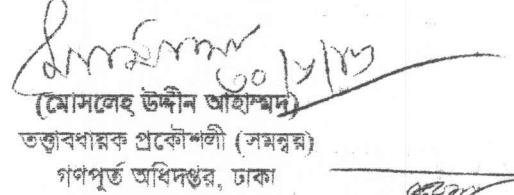 ৩০/৬/১৩
(মোসলেহ উদ্দীন আহাম্মদ)
তত্ত্বাবধায়ক প্রকৌশলী (সমন্বয়)
গণপূর্ত অধিদপ্তর, ঢাকা